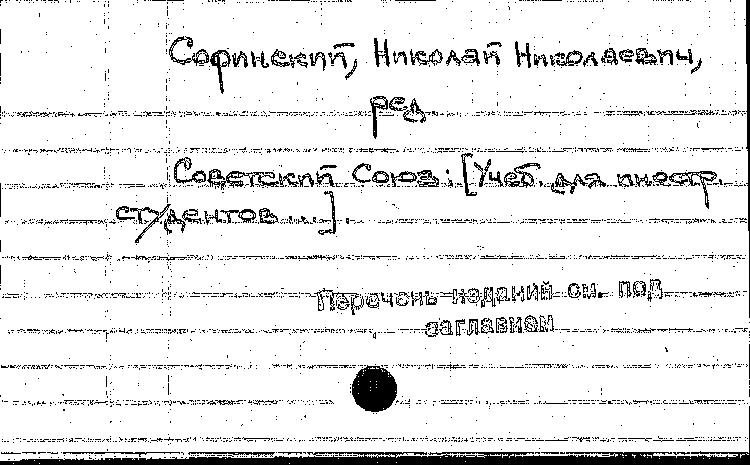 Софинский, Николай Николаевич,
ред.
Советский Союз: [Учеб. для иностр.
студентов ...].
Перечень изданий см. под
заглавием